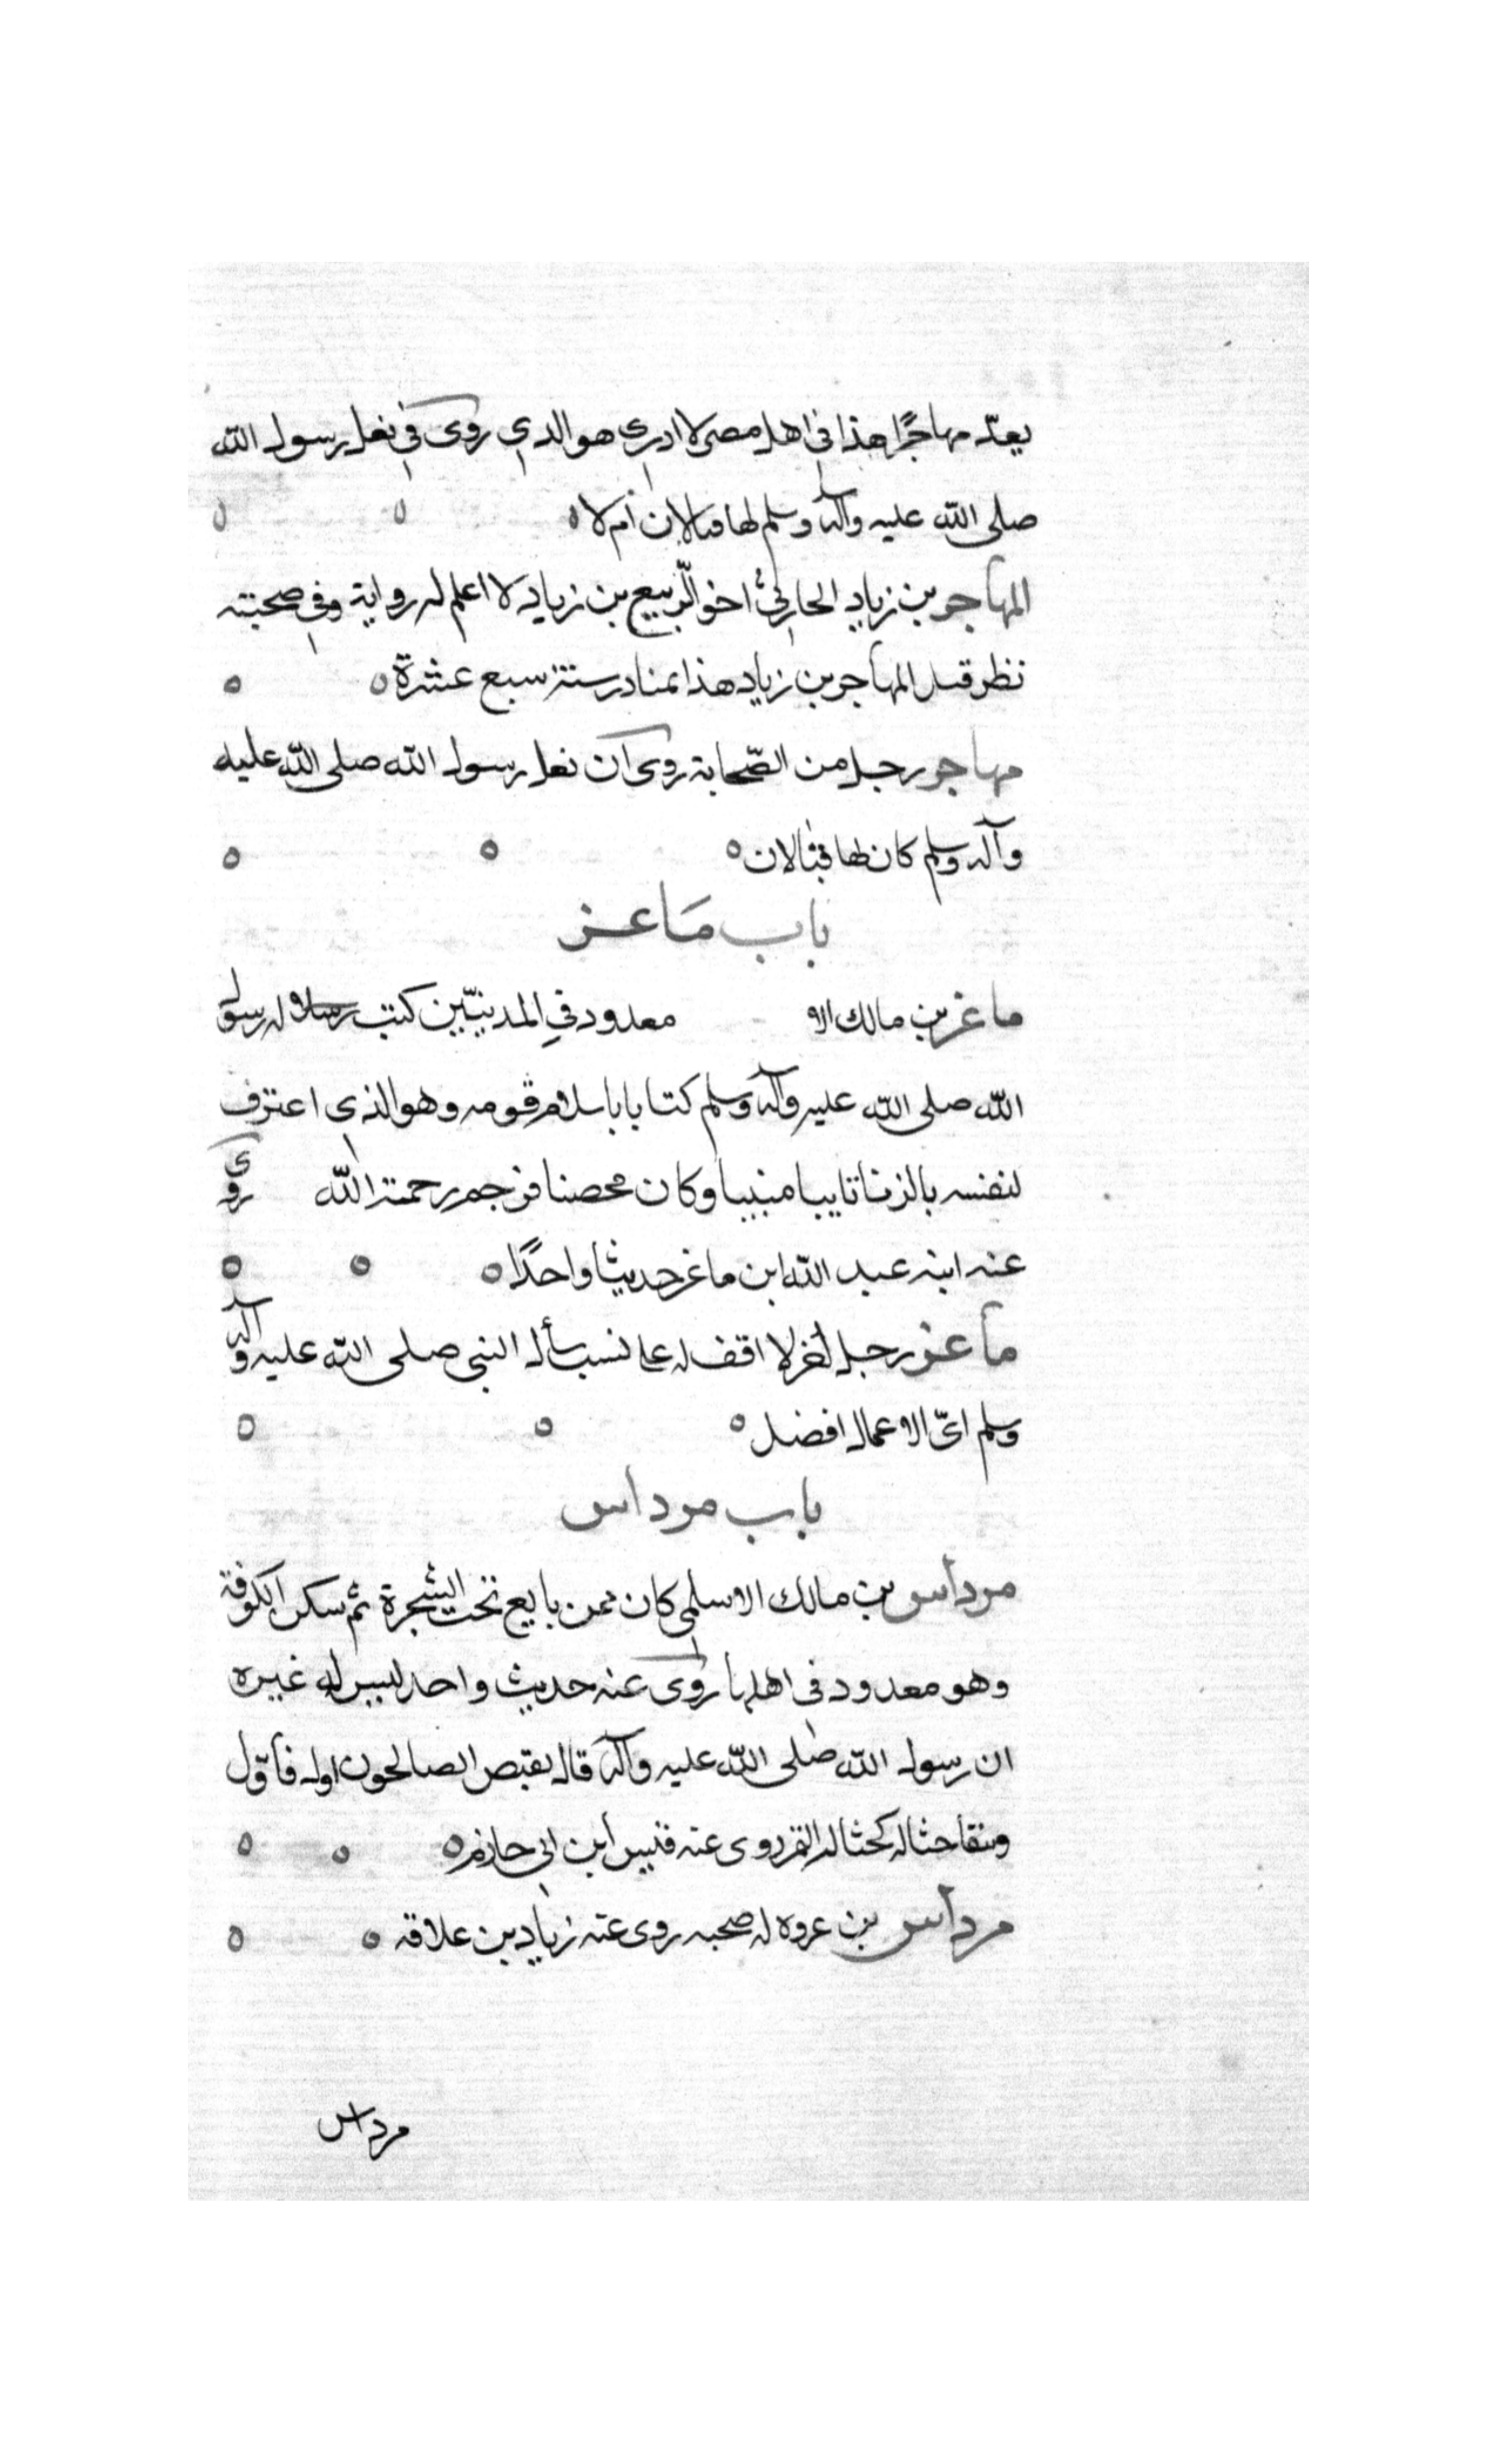 يعدّ مهاجرًا هذا في اهل مصر لا ادري هو الدي روى في نعل رسول الله
صلى الله عليه وآله وسلم لها قبالان أم لا
المهاجر بن زياد الحارثي اخو الرّبيع بن زياد لا اعلم له رواية وفي صحبته
نظر قتل المهاجر بن زياد هذا بمنادر سنة سبع عشرة
مهاجر رجل من الصّحابة روى ان نعل رسول الله صلى الله عليه
وآله وسلم كان لها قبالان
باب مَاعز
ماغز بن مالك الا معدود في المدنيّين كتب له رسول
الله صلى الله عليه وآله وسلم كتابا باسلام قومه وهو الذي اعترف
لنفسه بالزنا تايبا منيبا وكان محصنا فرجم رحمة الله روى
عنه ابنه عبد الله ابن ماغز حديثا واحدًا
ماعز رجل لخر لا اقف له على نسب سأل النبي صلى الله عليه وآله
وسلم ايّ الاعمال افضل
باب مرداس
مرداس بن مالك الاسلمي كان ممن بايع تحت الشجرة ثم سكن الكوفة
وهو معدود في اهلها روى عنه حديث واحد ليس له غيره
ان رسول الله صلى الله عليه وآله قال يقبض الصالحون اول فأوّل
وتبقا حثاله كحثاله التمر روى عنه قيس ابن ابي حازم
مرداس بن عروه له صحبه روى عنه زياد بن علاقه
مرداس